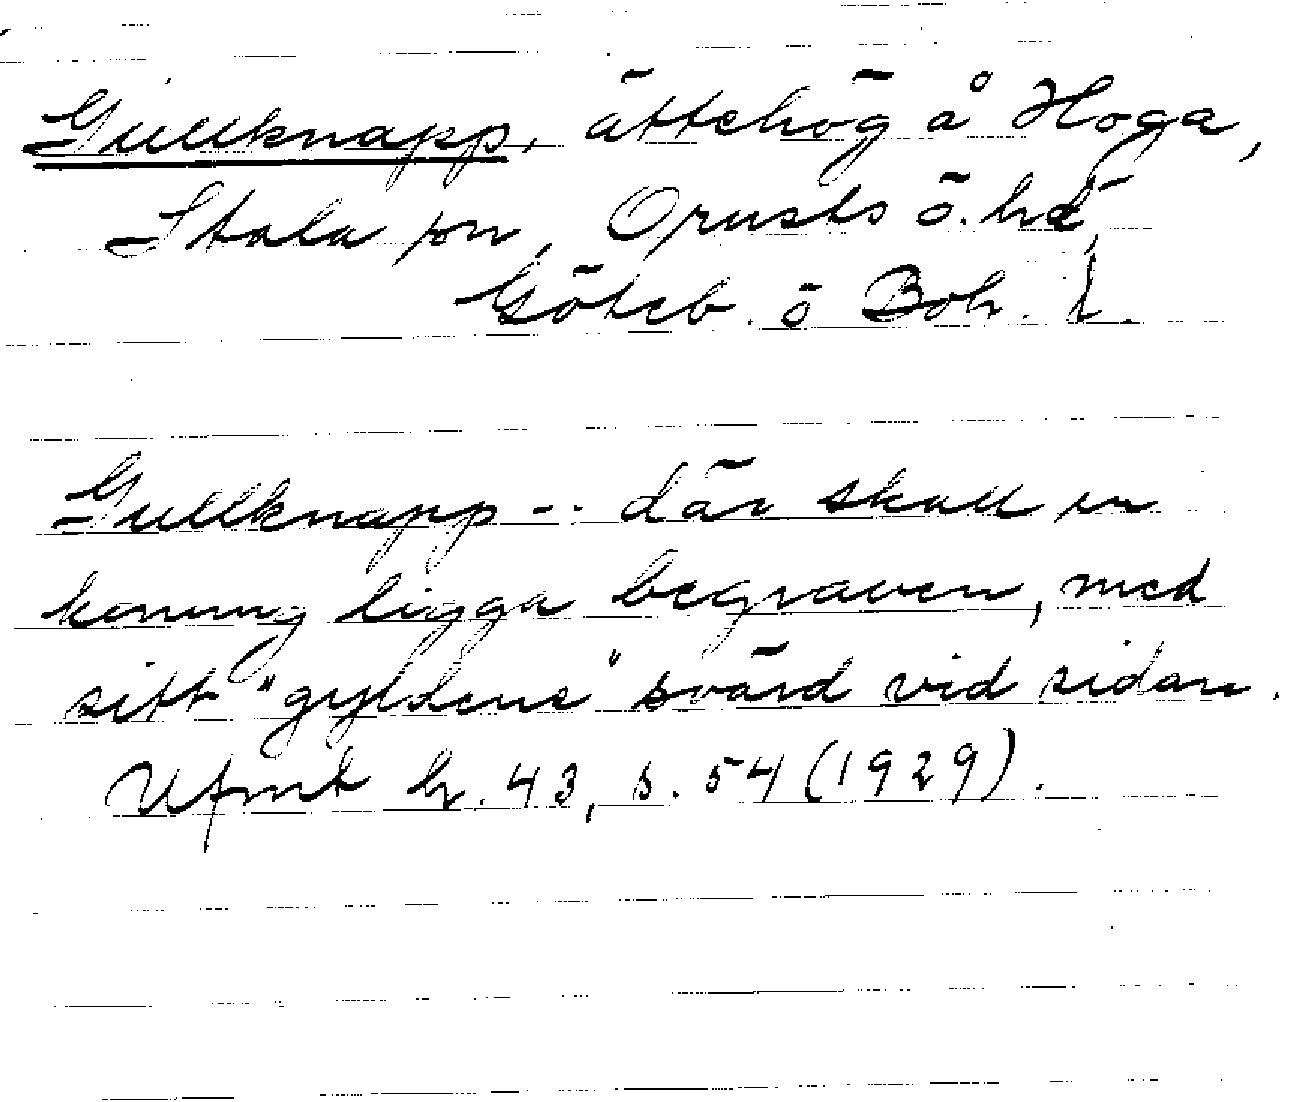 Gullknapp, ättehög å Hoga,
Stala sn, Orusts ö. hd,
Göteb. o Boh. l.
Gullknapp -- där skall en
konung ligga begraven, med
sitt "gyldene" svärd vid sidan.
Ufmt h. 43, s. 54 (1929).